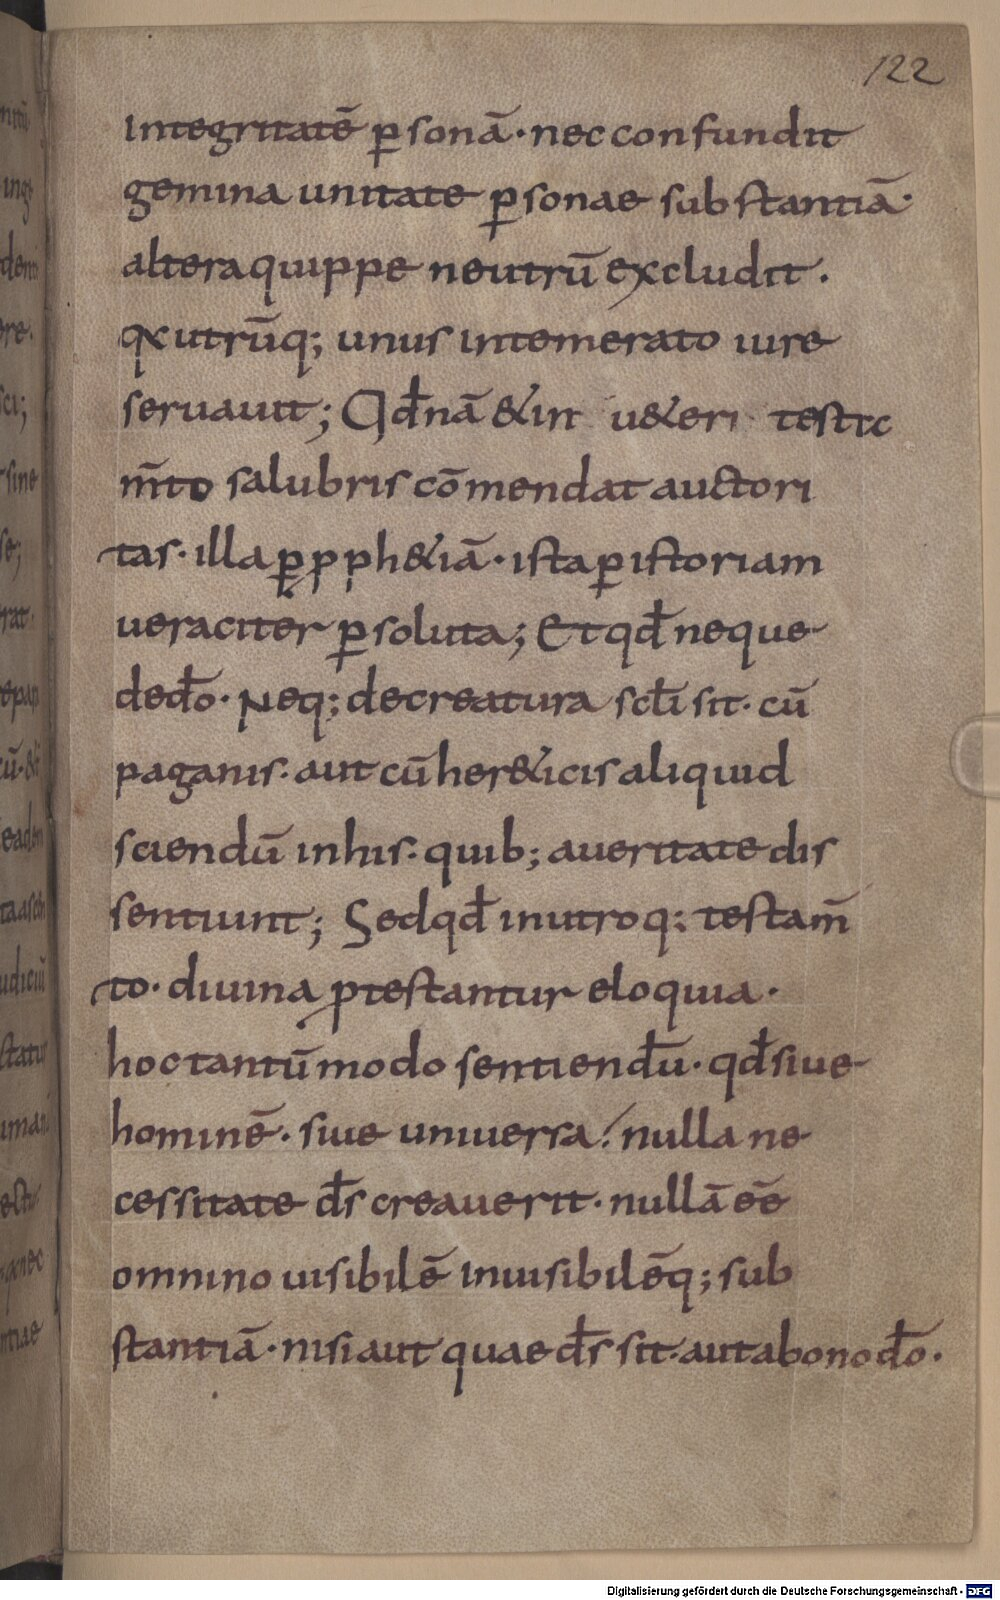 122
integritatē ꝑsonā· nec confundit
gemina unitate ꝑsonae substantiā·
altera quippe neutrū excludit.
qx utrūq; unus intemerato iure
seruauit; Qđ nā & in u&eri testic
m̄to salubris cōmendat auctori
tas· illa ꝑ pph&iā· ista ꝑ istoriam
ueraciter ꝑsoluta; Et qđ neque
de đo· Neq; de creatura scłi sit· cū
paganis· aut cū her&icis aliquid
sciendū in his· quib; a ueritate dis
sentiunt; Sed qđ in utroq: testam̄
to· diuina ꝓtestantur eloquia·
hoc tantūmodo sentienđu· qđ siue
hominē· siue uniuersa! nulla ne
cessitate đs creauerit· nullā eē
omnino uisibilē inuisibilēq; sub
stantiā· nisi aut quae đs sit· aut a bono đo·
Digitalisierung gefördert durch die Deutsche Forschungsgemeinschaft - DFG